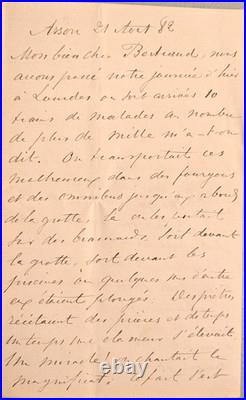 Asson 21 Aout 82
Mon bien cher Bertrand, nous
avons passé notre journée d'hier
à Lourdes où sont arrivés 10
trains de malades au nombre
de plus de mille m'a-t-on
dit. On transportait ces
malheureux dans des fourgons
et des omnibus jusqu'aux abords
de la grotte. Là on les mettait
sur des brancards, soit devant
la grotte, soit devant les
piscines où quelques uns d'entre
eux étaient plongés. Des prêtres
récitaient des prières et de temps
en temps une clameur s'élevait
Un miracle! on chantait le
magnificat. Le fait est